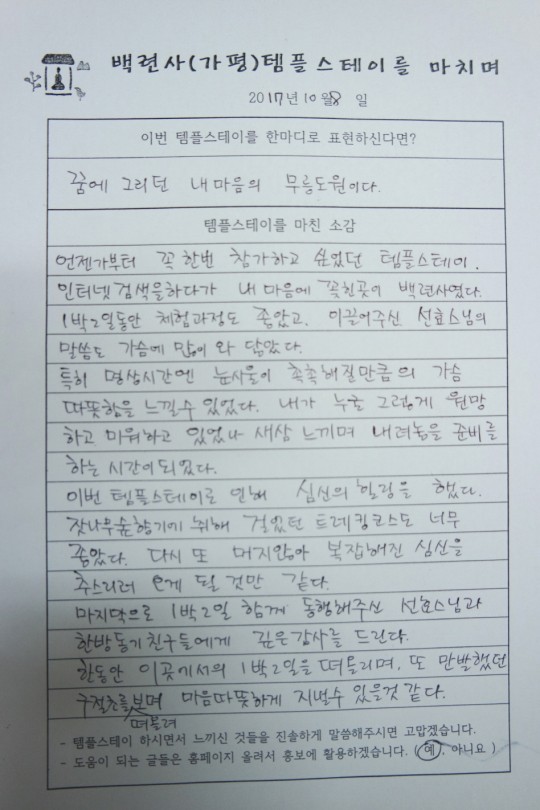 백련사(가평)템플스테이를 마치며
2017년 10월 8 일
이번 템플스테이를 한마디로 표현하신다면?
꿈에 그리던 내마음의 무릉도원이다.
템플스테이를 마친 소감
언젠가부터 꼭한번 참가하고 싶었던 템플스테이.
인터넷검색을하다가 내 마음에 꽂힌곳이 백련사였다.
1박2일동안 체험과정도 좋았고, 이끌어주신 선효스님의
말씀도 가슴에 많이 와 닿았다.
특히 명상시간엔 눈시울이 촉촉해질만큼의 가슴
따뜻함을 느낄수 있었다. 내가 누굴 그렇게 원망
하고 미워하고 있었나 새삼 느끼며 내려놓을 준비를
하는 시간이되었다.
이번 템플스테이로 인해 심신의 힐링을 했다.
잣나무숲향기에 취해 걸었던 트레킹코스도 너무
좋았다. 다시 또 머지않아 복잡해진 심신을
추스리러 오게 될 것만 같다.
마지막으로 1박2일 함께 동행해주신 선효스님과
한방동기친구들에게 깊은감사를 드린다.
한동안 이곳에서의 1박2일을 떠올리며, 또 만발했던
구절초를 보며 마음따뜻하게 지낼수 있을것 같다.
떠올려
- 템플스테이 하시면서 느끼신 것들을 진솔하게 말씀해주시면 고맙겠습니다.
- 도움이 되는 글들은 홈페이지 올려서 홍보에 활용하겠습니다. ( 예, 아니요 )